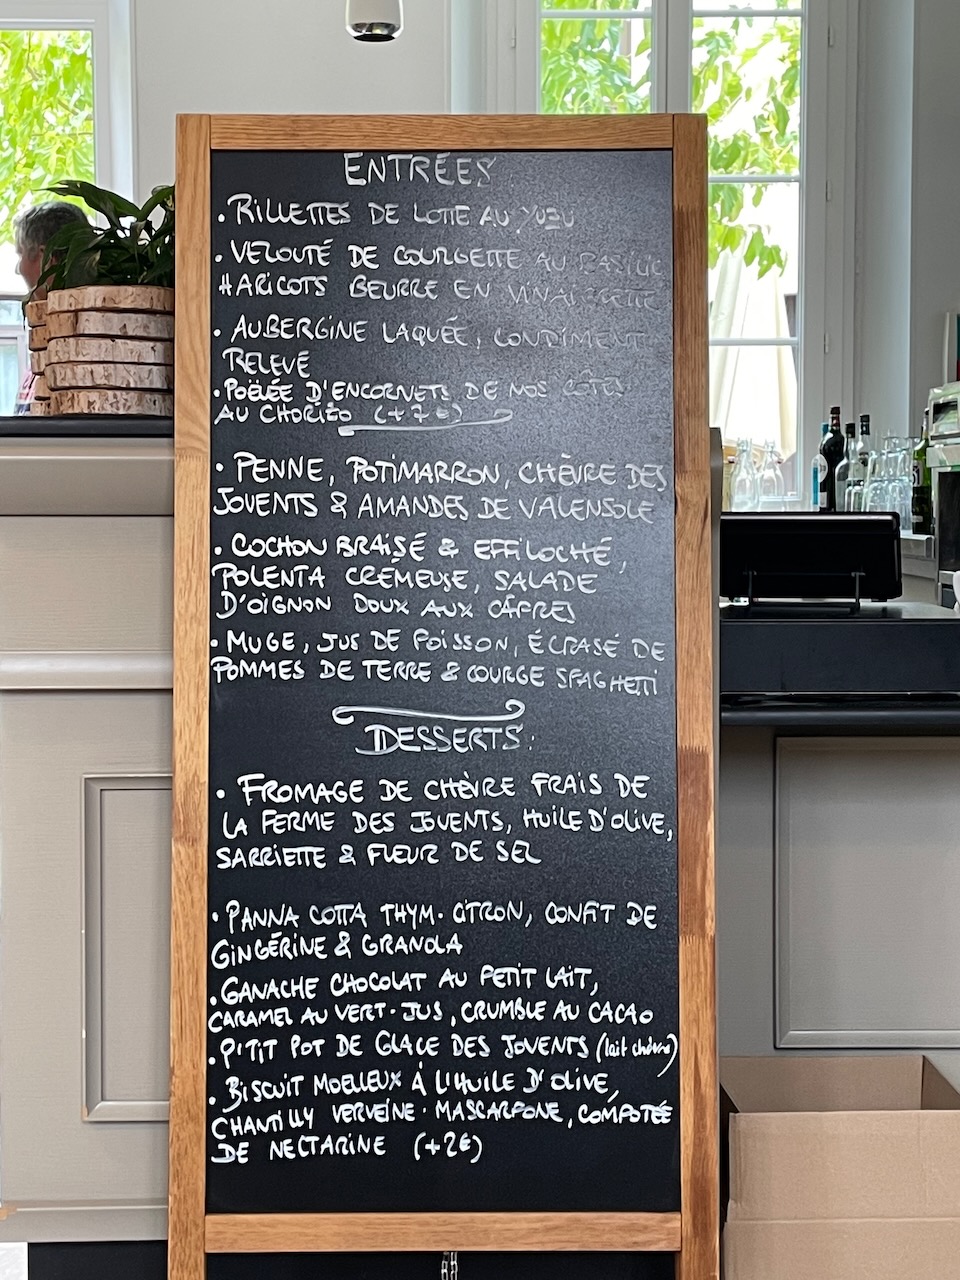 ENTRÉES
• RILLETTES DE LOTTE AU YUZU
• VELOUTÉ DE COURGETTE AU BASILIC
HARICOTS BEURRE EN VINAIGRETTE
• AUBERGINE LAQUÉE, CONDIMENT
RELEVÉ
• POËLÉE D'ENCORNETS DE NOS CÔTES
AU CHORIZO (+7€)
• PENNE, POTIMARRON, CHÈVRE DES
JOVENTS & AMANDES DE VALENSOLE
• COCHON BRAISÉ & EFFILOCHÉ,
POLENTA CRÉMEUSE, SALADE
D'OIGNON DOUX AUX CÂPRES
• MUGE, JUS DE POISSON, ÉCRASÉ DE
POMMES DE TERRE & COURGE SPAGHETTI
DESSERTS:
• FROMAGE DE CHÈVRE FRAIS DE
LA FERME DES JOVENTS, HUILE D'OLIVE,
SARRIETTE & FLEUR DE SEL
• PANNA COTTA THYM-CITRON, CONFIT DE
GINGÉRINE & GRANOLA
• GANACHE CHOCOLAT AU PETIT LAIT,
CARAMEL AU VERT-JUS, CRUMBLE AU CACAO
• P'TIT POT DE GLACE DES JOVENTS (lait chèvre)
• BISCUIT MOELLEUX À L'HUILE D'OLIVE,
CHANTILLY VERVEINE-MASCARPONE, COMPOTÉE
DE NECTARINE (+2€)